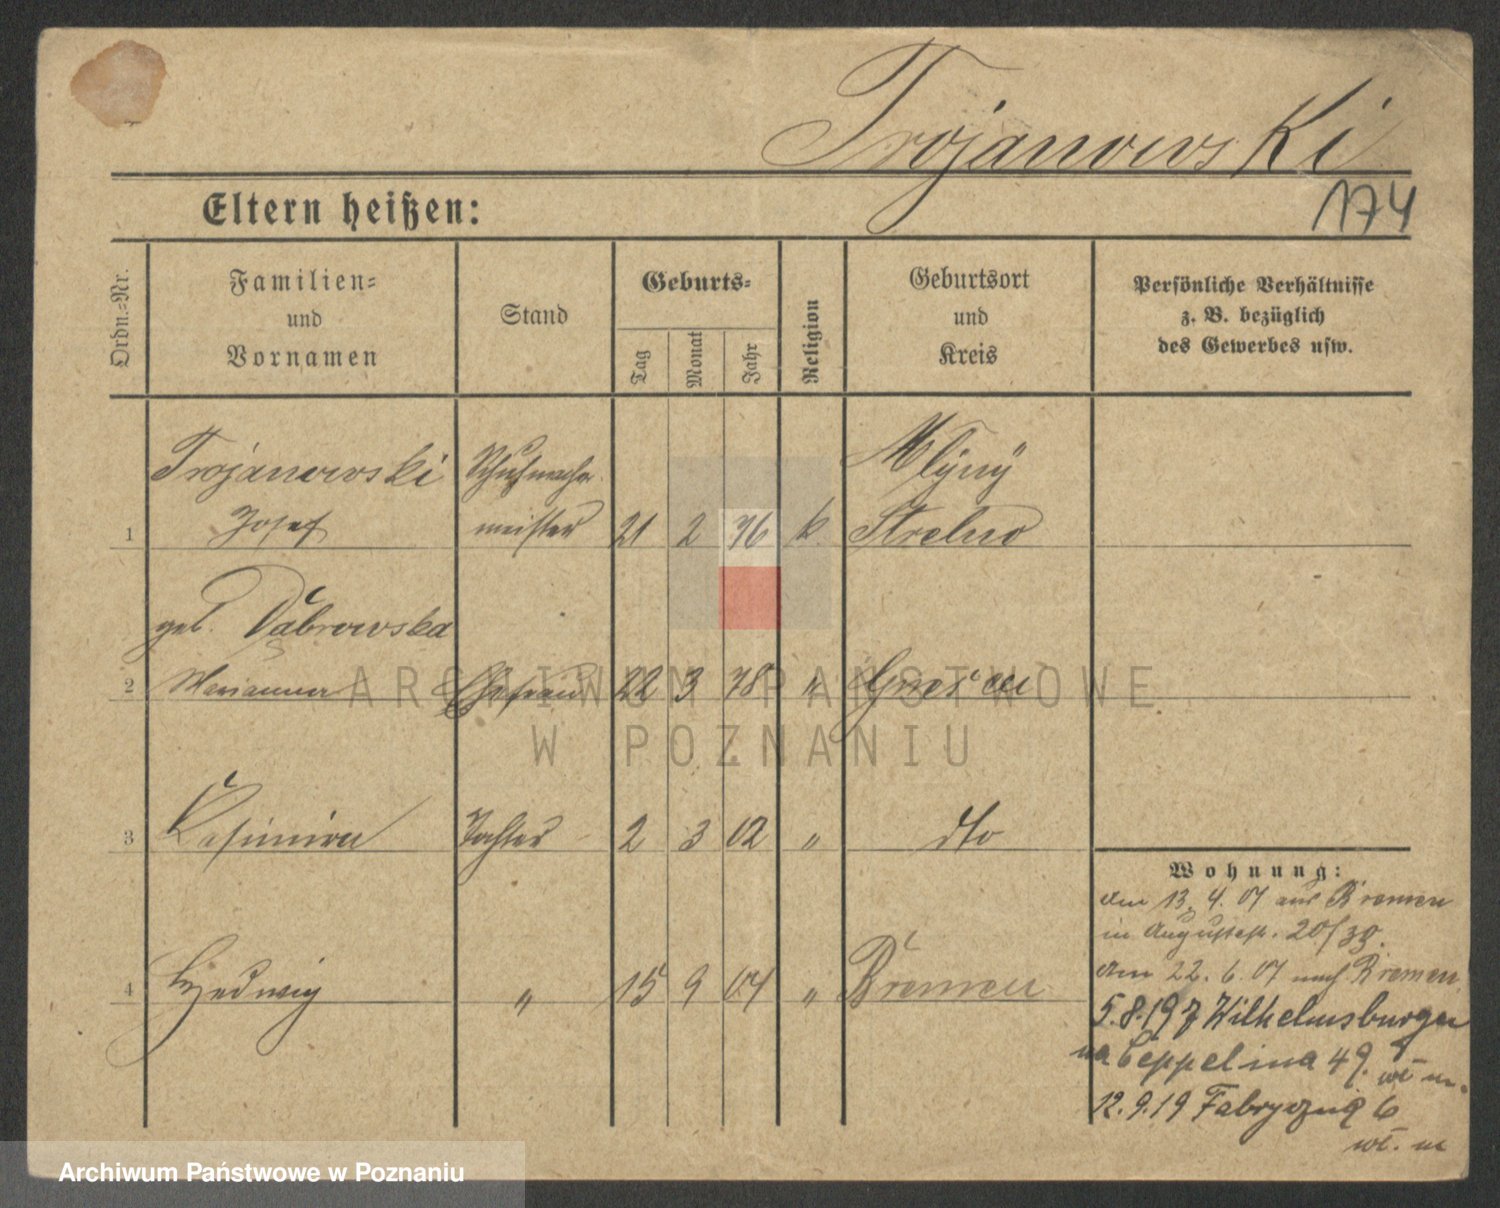 Trojanowski
174
Eltern heißen:
Ordn.-Nr.
Familien-
und
Vornamen
Stand
Geburts-
Tag
Monat
Jahr
Religion
Geburtsort
und
Kreis
Persönliche Verhältnisse
z. B. bezüglich
des Gewerbes usw.
Trojanowski Schuhmacher Mlýný
1 Josef meister 21 2 76 k. Strelno
geb. Dąbrowska
2 Marianna Ehefrau 22 3 78 "
3 Kasimira Tochter 2 3 02 " dto
4 Hedwig " 15 9 04 " Bremen
Wohnung:
den 13. 4. 07 aus Bremen
in Augustastr. 20/
den 22. 6. 07 nach Bremen.
5.8.19 z Wilhelmsburga
na Ceppelina 49.
wł. m.
12.9.19 Fabryczną 6
wł. m
ARCHIWUM PAŃSTWOWE
W POZNANIU
Archiwum Państwowe w Poznaniu